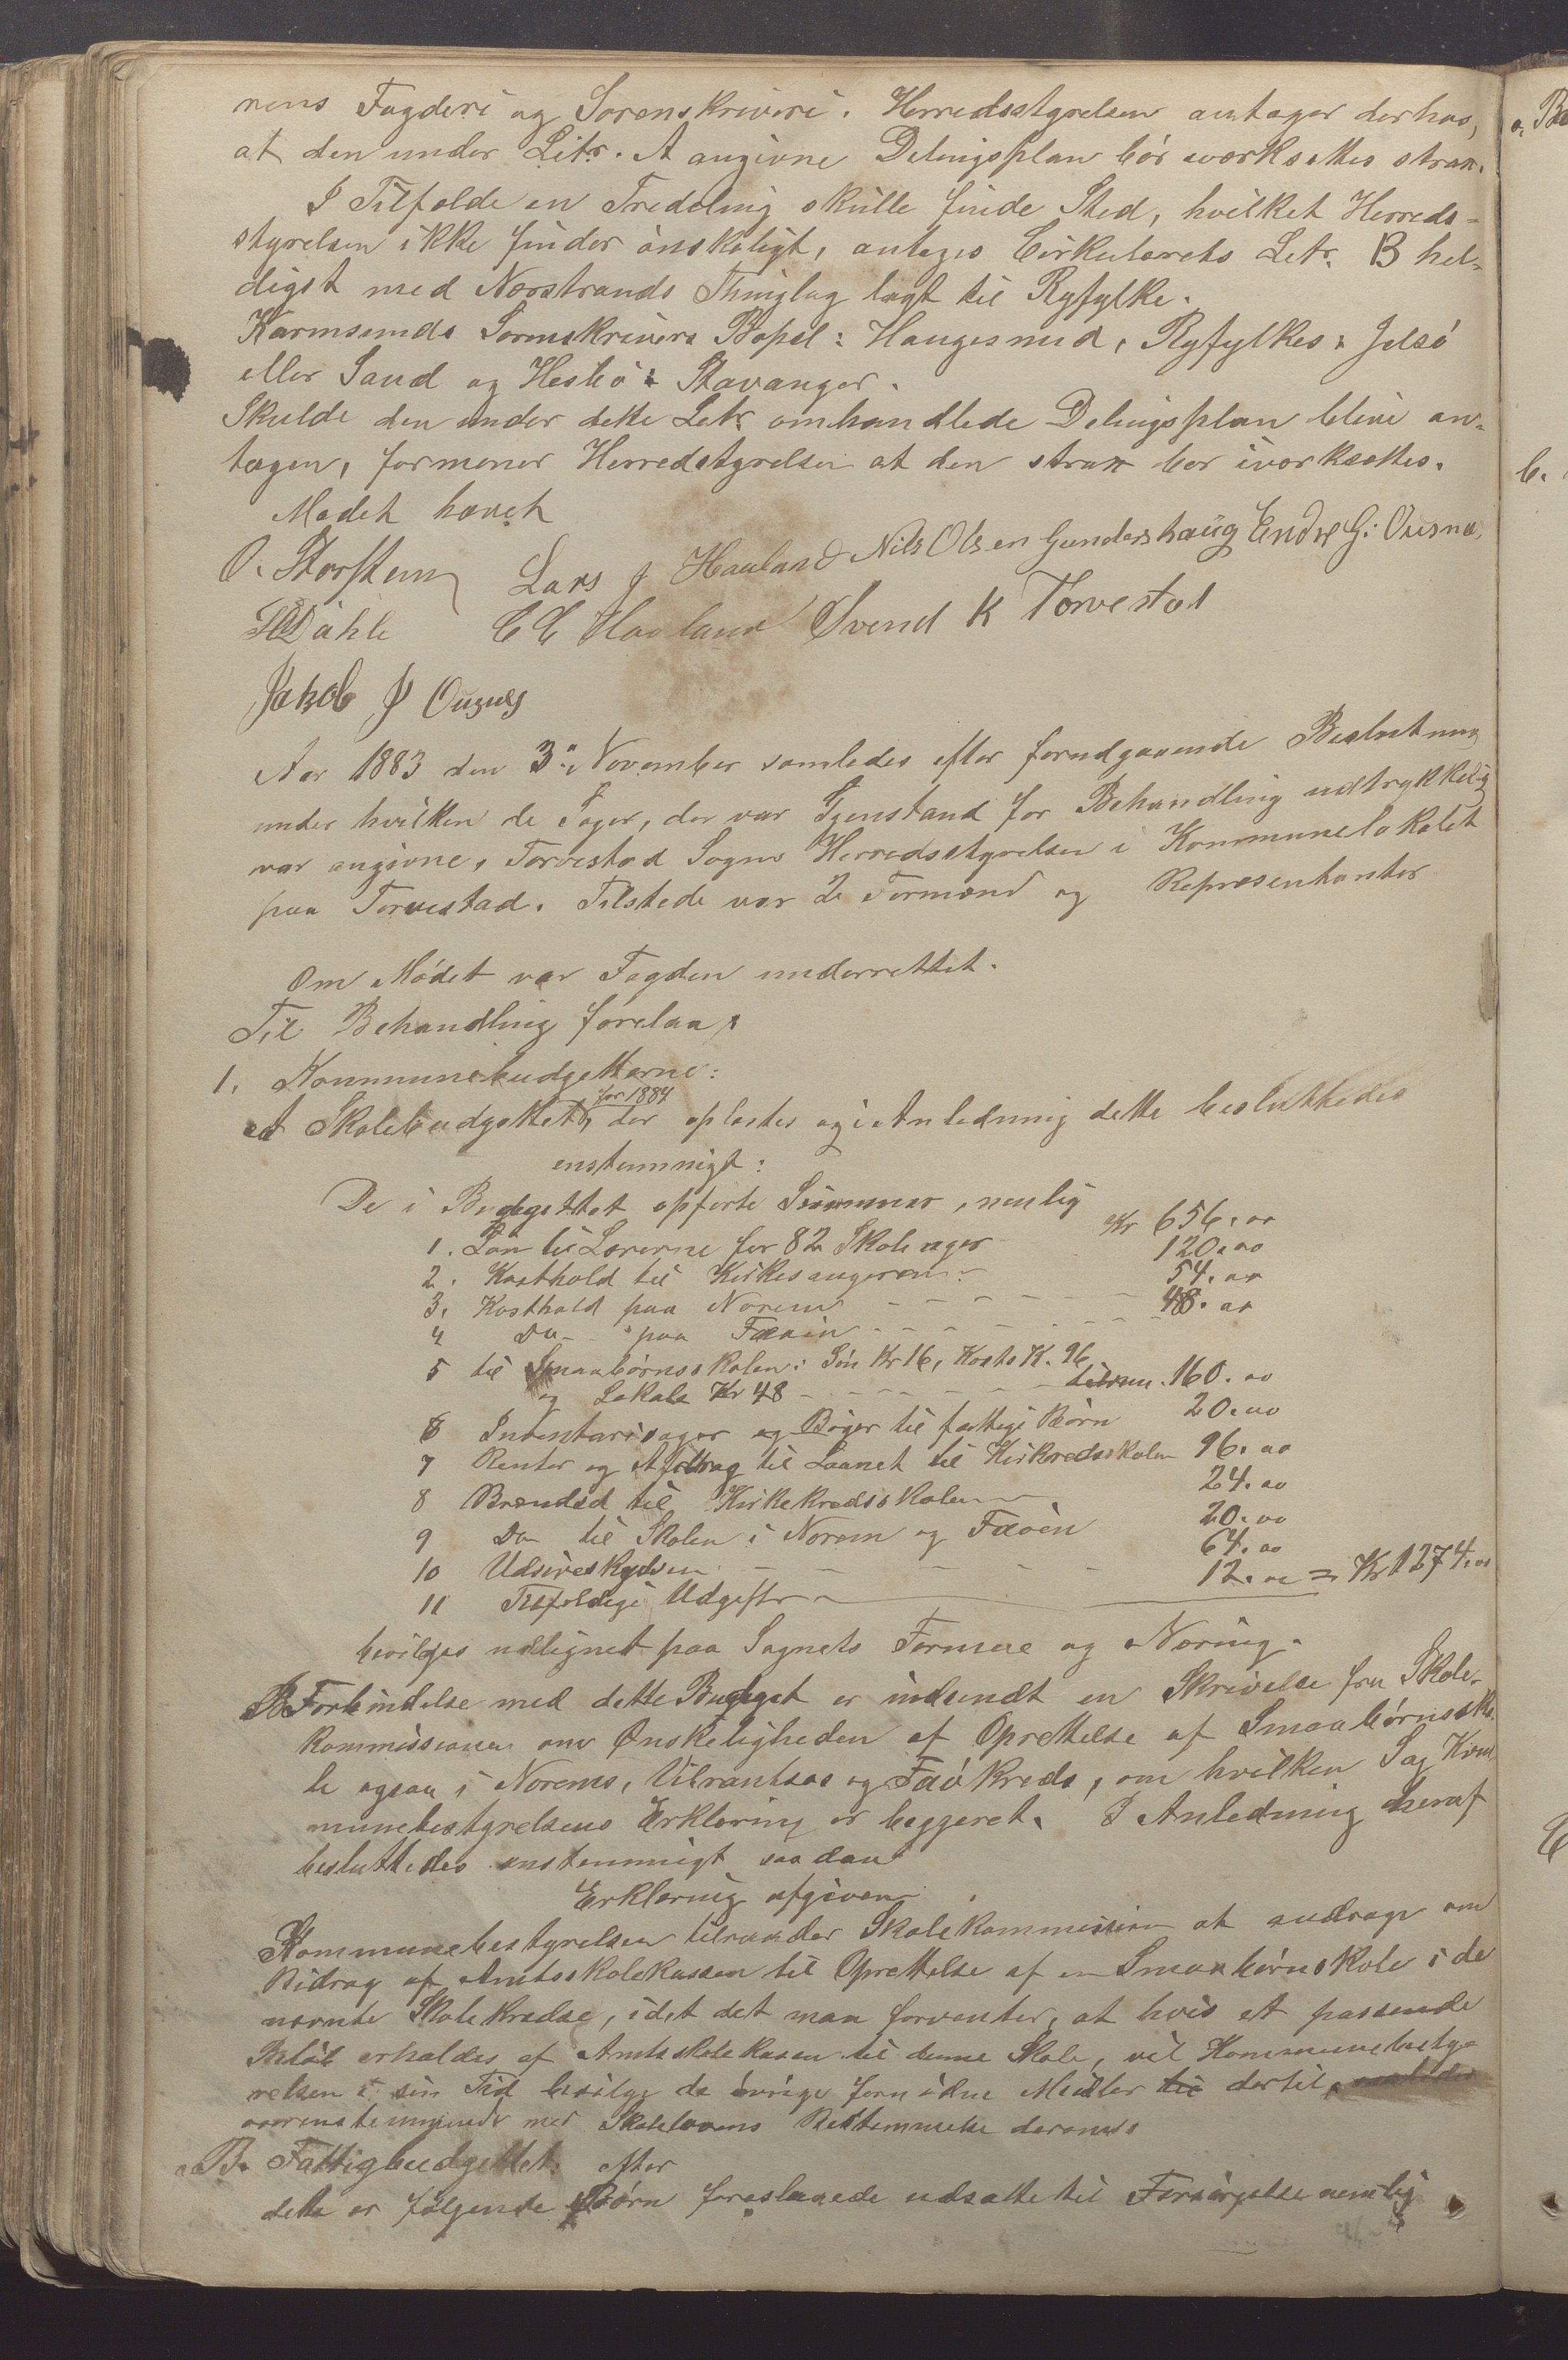 nens Fogderi og Sorenskriveri. Herredsstyrelsen antager derhos,
at den under Litr. A angivne Delingsplan bör iværksættes strax.
I Tilfælde en Tredeling skulle finde Sted, hvilket Herreds-
styrelsen ikke finder önskeligt, antages Cirkulærets Litr. B hel-
digst med Nærstrands Thinglag lagt til Ryfylke.
Karmsunds Sorenskrivers Bopæl: Haugesund, Ryfylkes: Jelsö
eller Sand og Hesbö: Stavanger.
Skulde den under dette Litr. omhandlede Delingsplan blive an-
tagen, formener Herredstyrelsen at den strax bör iværksættes.
Mödet hævet
O. Storsteen Lars J Hauland Nils Olsen Gundershaüg Endre G: Ousnæ,
Dahle E E Havland Svend K Torvestad
Jakob J Ousnes
Aar 1883 den 3die November samledes efter forudgaaende Beslutning
under hvilken de Sager, der var Gjenstand for Behandling udtrykkelig
var angivne, Torvestad Sogns Herredsstyrelse i Kommunelokalet
paa Torvestad. Tilstede var 2 Formænd og Repræsentanter
Om Mödet var Fogden underrettet.
Til Behandling forelaa:
1. Kommunebudgetterne:
A Skolebudgettet for 1884, der oplæstes og i Anledning dette besluttedes
enstemmigt:
De i Budgettet opförte Summer, nemlig
1. Lön til Lærerne for 82 Skoleuger Kr 656.00
2. Kosthold til Kirkesangeren 120.00
3. Kosthold paa Norem 54.00
4 Do paa Fæöen 48.00
5 til Smaabörnsskolen: Lön Kr 16, Kosth K. 96
og Lokale Kr 48 tilsm. 160.00
6 Inventarisager og Böger til fattige Börn 20.00
7 Renter og Afdrag til Laanet til Kirkredsskolen 96.00
8 Brændsel til Kirkekredsskolen 24.00
9 Do til Skolen i Norem og Fæöen 20.00
10 Udsireskydsen 64.00
11 Tilfældige Udgifter 12.00 = Kr 1274.00
bevilges udlignet paa Sognets Formue og Næring.
I Forbindelse med dette Budget er indsendt en Skrivelse fra Skole-
kommissionen om Önskeligheden af Oprettelse af Smaabörnssko-
le ogsaa i Norems, Vibrantsøs og Fæö Kreds, om hvilken Sag Kom
munebestyrelsens Erklæring er begjæret. I Anledning heraf
besluttedes enstemmigt saadan
Erklæring afgiven
Kommunebestyrelsen tilraader Skolekommissionen at andrage om
Bidrag af Amtsskolekassen til Oprettelse af en Smaabörnskole i de
nævnte Skolekredse, idet det man forventer, at hvis et passende
Belöb erholdes af Amtsskolekassen til denne Skole, vil Kommunebesty-
relsen i sin Tid bevilge de övrige fornödne Midler til dertil,
overenstemmende med Skolelovens Bestemmelse derom.
B. Fattigbudgettet. efter
dette er fölgende Börn foreslaaede udsatte til Forsörgelse nemlig